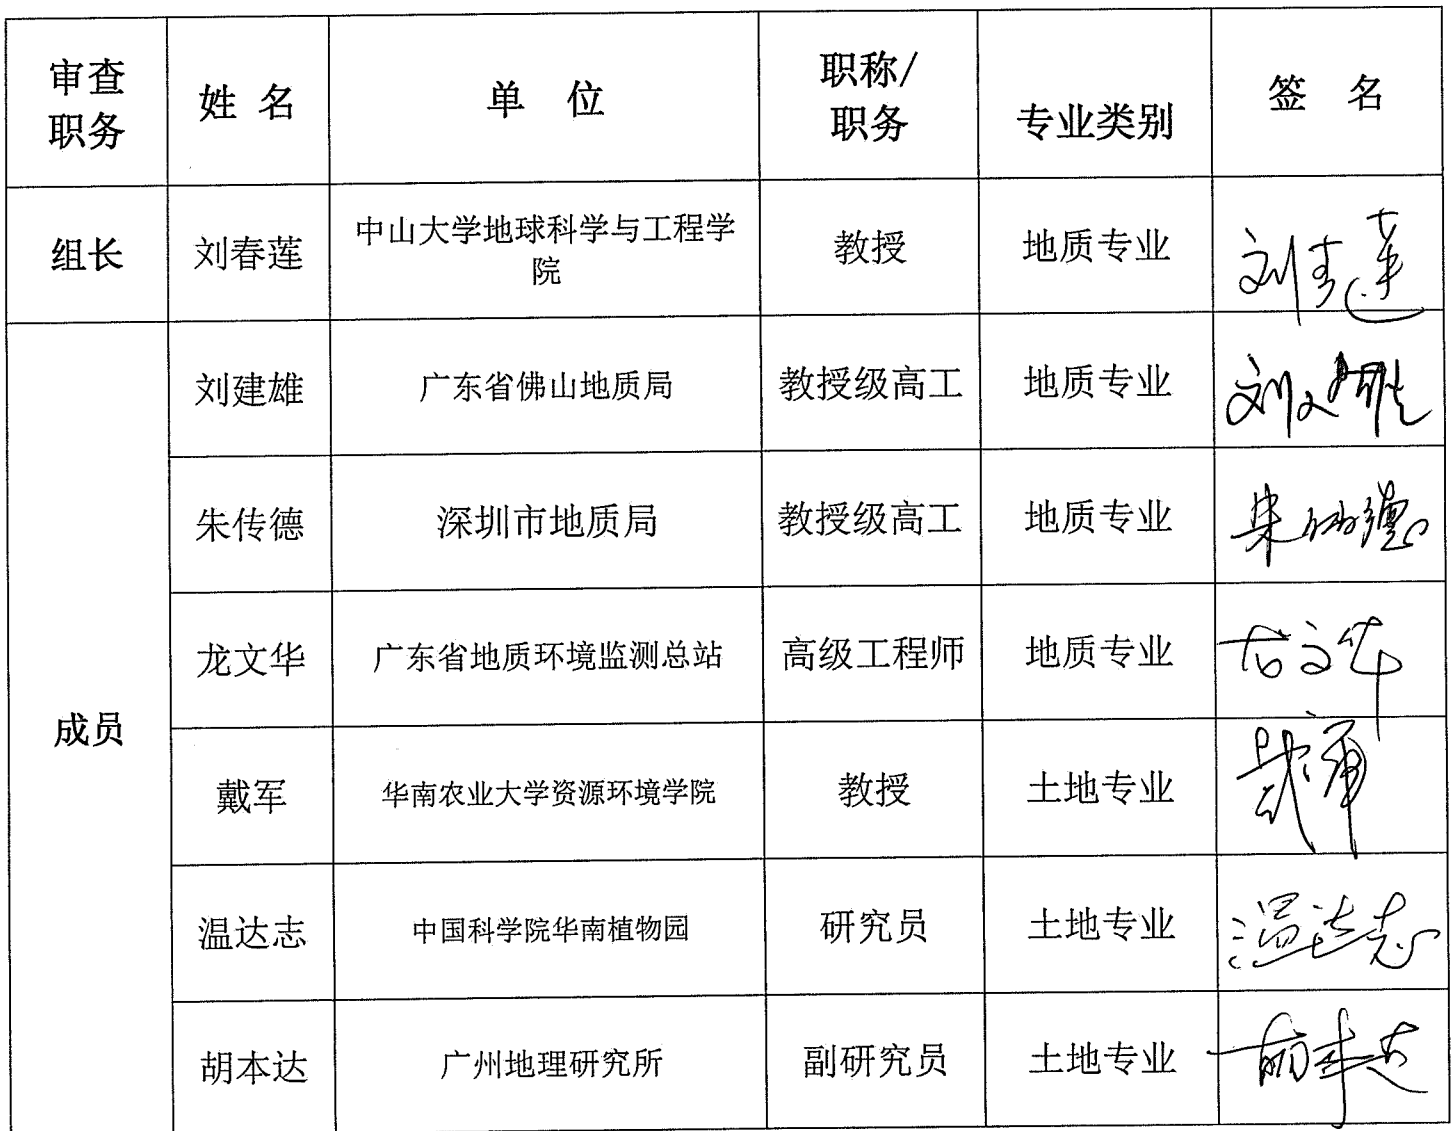 审查职务 姓名 单位 职称/职务 专业类别 签名
组长 刘春莲 中山大学地球科学与工程学院 教授 地质专业 刘春莲
成员 刘建雄 广东省佛山地质局 教授级高工 地质专业 刘建雄
朱传德 深圳市地质局 教授级高工 地质专业 朱传德
龙文华 广东省地质环境监测总站 高级工程师 地质专业 龙文华
戴军 华南农业大学资源环境学院 教授 土地专业 戴军
温达志 中国科学院华南植物园 研究员 土地专业 温达志
胡本达 广州地理研究所 副研究员 土地专业 胡本达